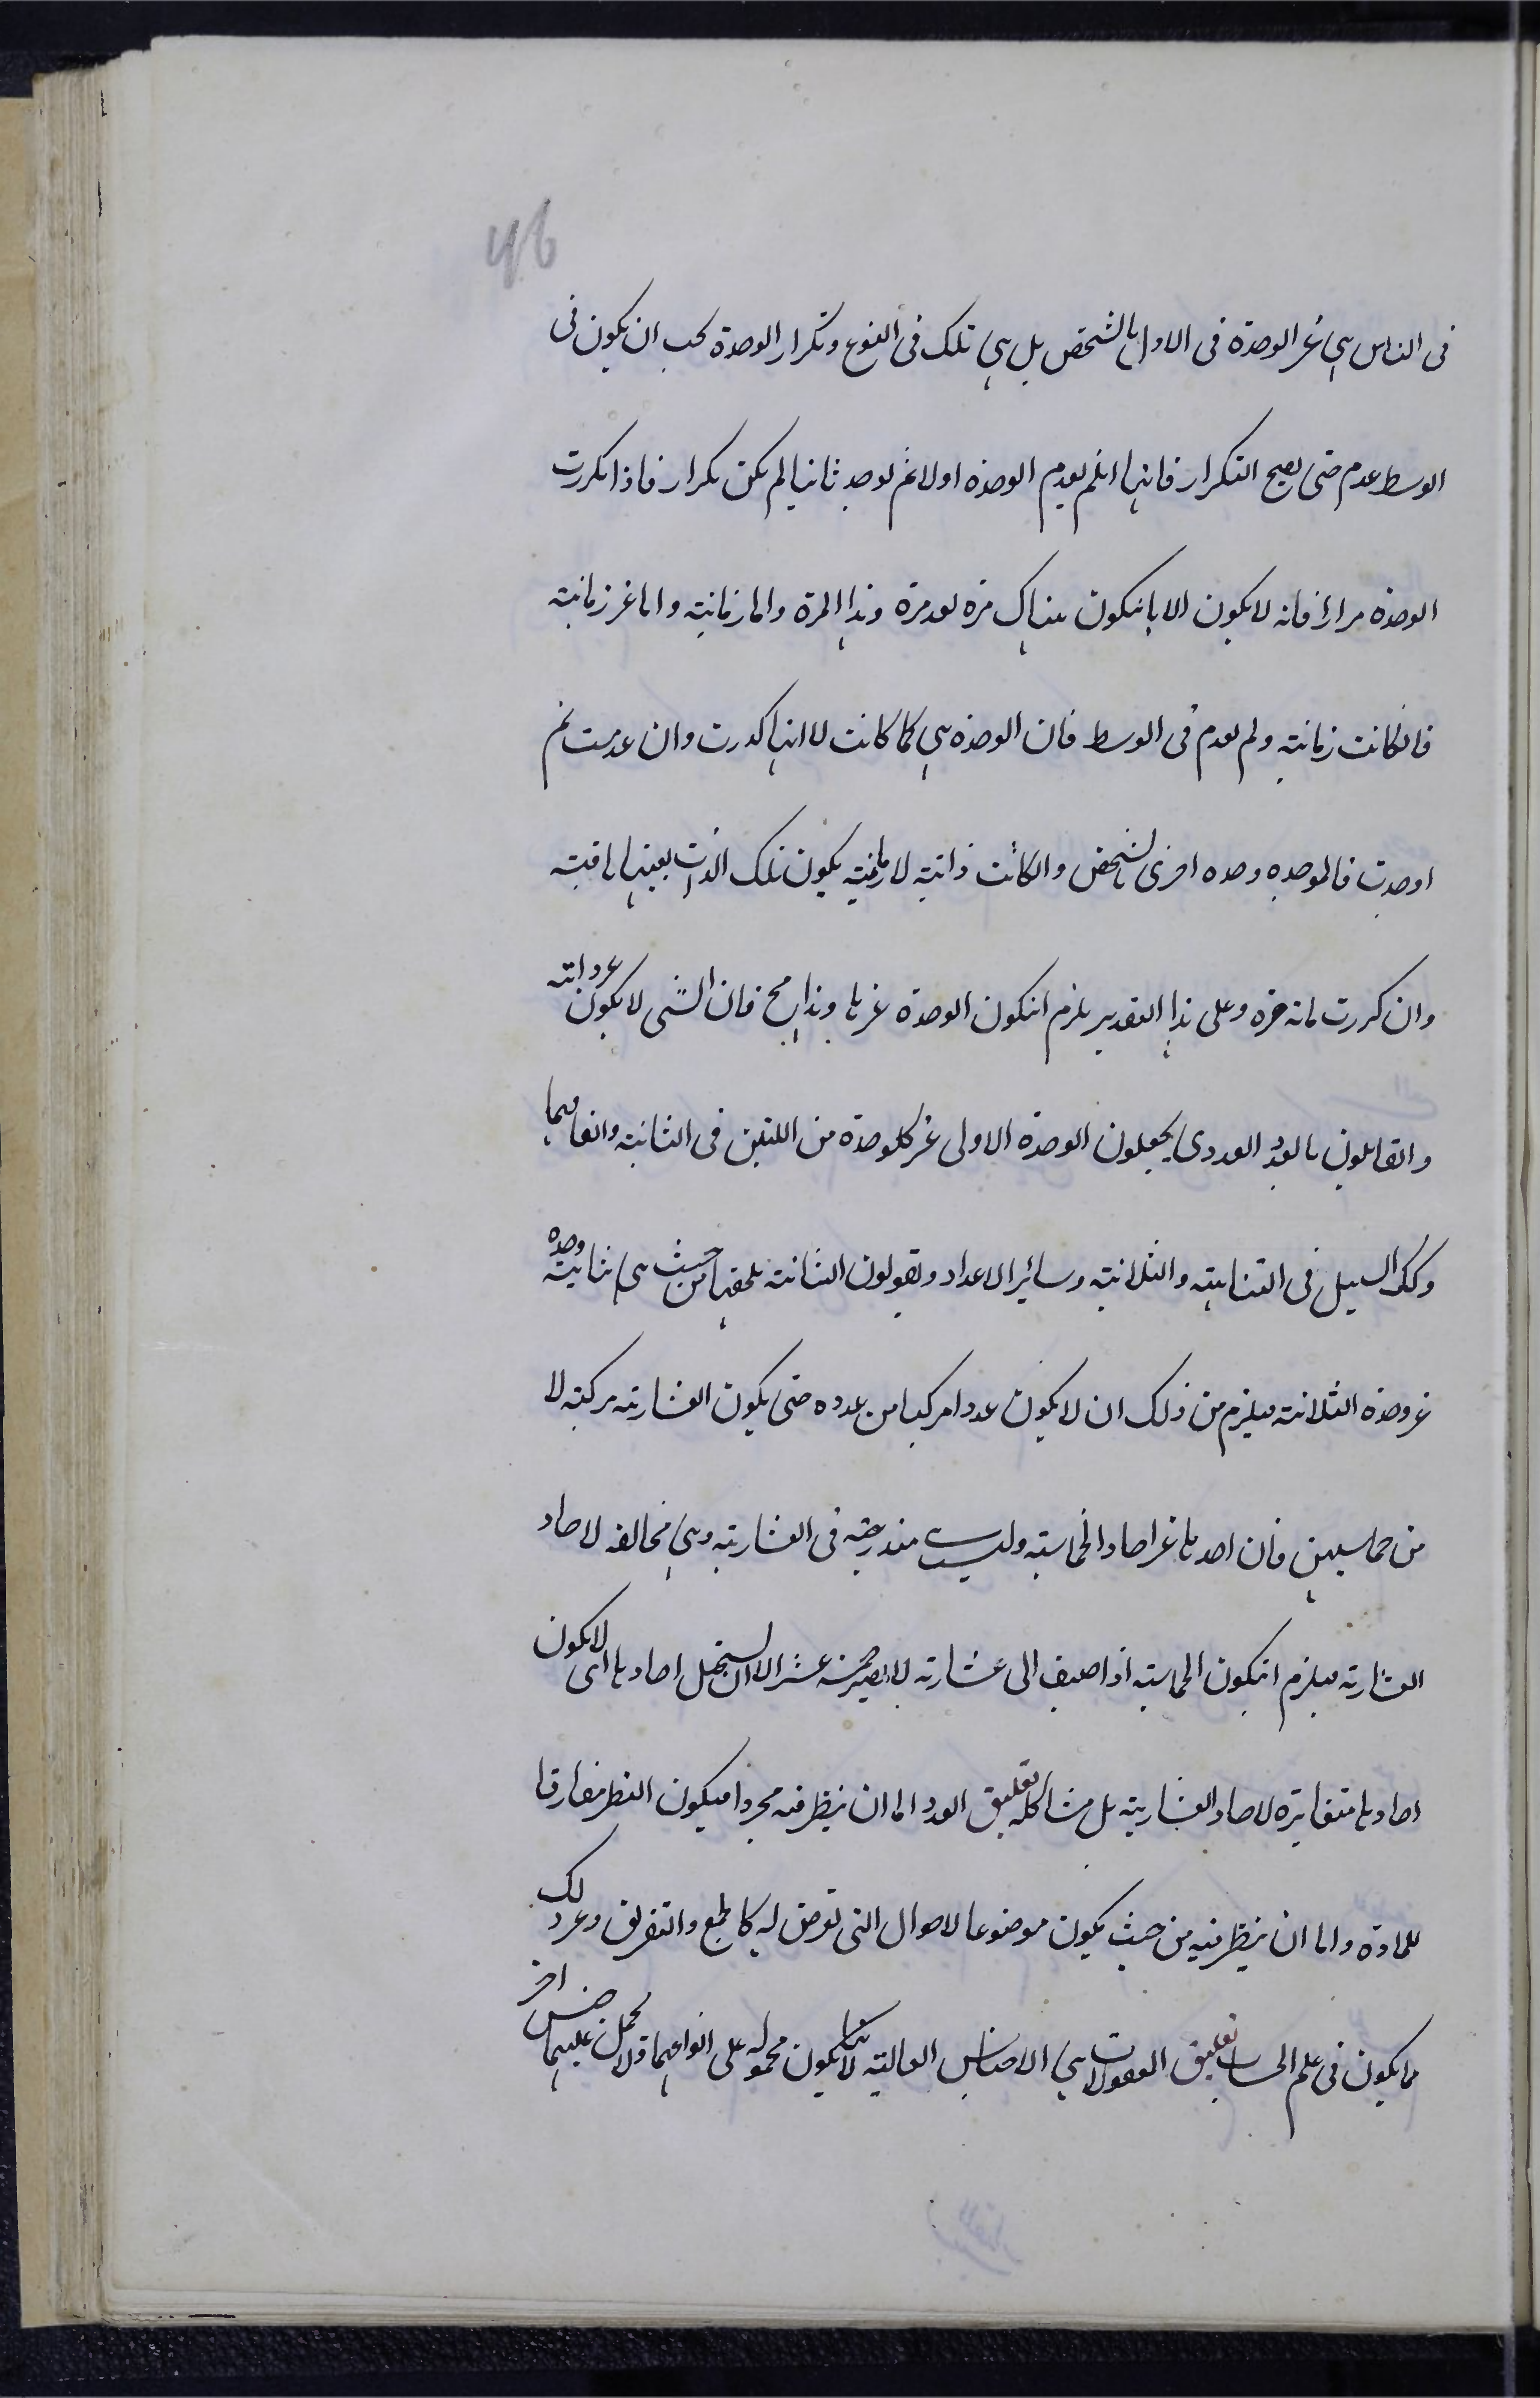 46
فى الثانى هى غير الوحدة فى الاول بالشخص بل هى تلك فى النوع وتكرار الوحدة يجب ان يكون فى
الوسط عدم حتى يصح التكرار فانها ان لم يعدم الوحدة اولا ثم يوجد ثانيا لم يكن تكرار فاذا تكررت
الوحدة مرارا فانه لا يكون الا بان يكون هناك مرة بعد مرة وهذا المرة واما زمانية واما غير زمانية
فان كانت زمانية ولم يعدم فى الوسط فان الوحدة هى كما كانت لا انها كررت وان عدمت ثم
اوجدت فالموجدة وحدة اخرى بالشخص وان كانت ذاتية لا زمانية يكون تلك الذات بعينها باقية
وان كررت مرة وعلى هذا التقدير يلزم ان يكون الوحدة غيرها وهذا مح فان الشئ لا يكون غير ذاته
والقائلون بالعدد العددى يجعلون الوحدة الاولى غير كل وحدة من اللتين فى الثانية
وكك السبيل فى الثنائية والثلاثية وسائر الاعداد ويقولون الثنائية يلحقها من حيث هى ثنائية وحدة
غير وحدة الثلاثية فيلزم من ذلك ان لا يكون عددا مركبا من عدده حتى يكون العشارية مركبة لا
من خماسيين فان احدها غير احاد الخماسية وليست مندرجة فى العشارية وهى مخالفة لاحاد
العشارية فيلزم ان يكون الخماسية اذا اضيف الى عشارية لا يصير خمسة عشر الا ان يستحيل احادها اى لا يكون
احادها متغايرة لاحاد العشارية بل مشاكلة تعليق العدد اما ان ينظر فيه مجردا فيكون النظر مفارقا
للمادة واما ان ينظر فيه من حيث يكون موضوعا لاحوال التى تعرض له كالجمع والتفريق وغير ذلك
مما يكون فى علم الحساب تعليق المقولات هى الاجناس العالية لانها يكون محمولة على انواعها ولا يحمل عليها جنس اخر